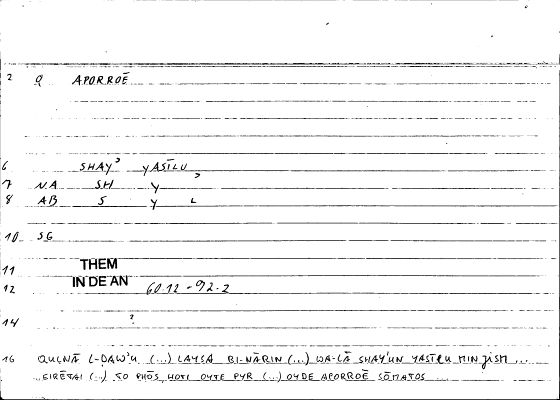 2 Q APORROĒ
6 SHAY' YASĪLU
7 NA SH Y '
8 AB S Y L
10 SG
11 THEM
12 IN DE AN 60.12 - 92.2
14 ?
16 QULNĀ L-ḌAW'U (...) LAYSA BI-NĀRIN (...) WA-LĀ SHAY'UN YASĪLU MIN JISM ...
EIRĒTAI (...) TO PHŌS HOTI OYTE PYR (...) OYDE APORROĒ SŌMATOS